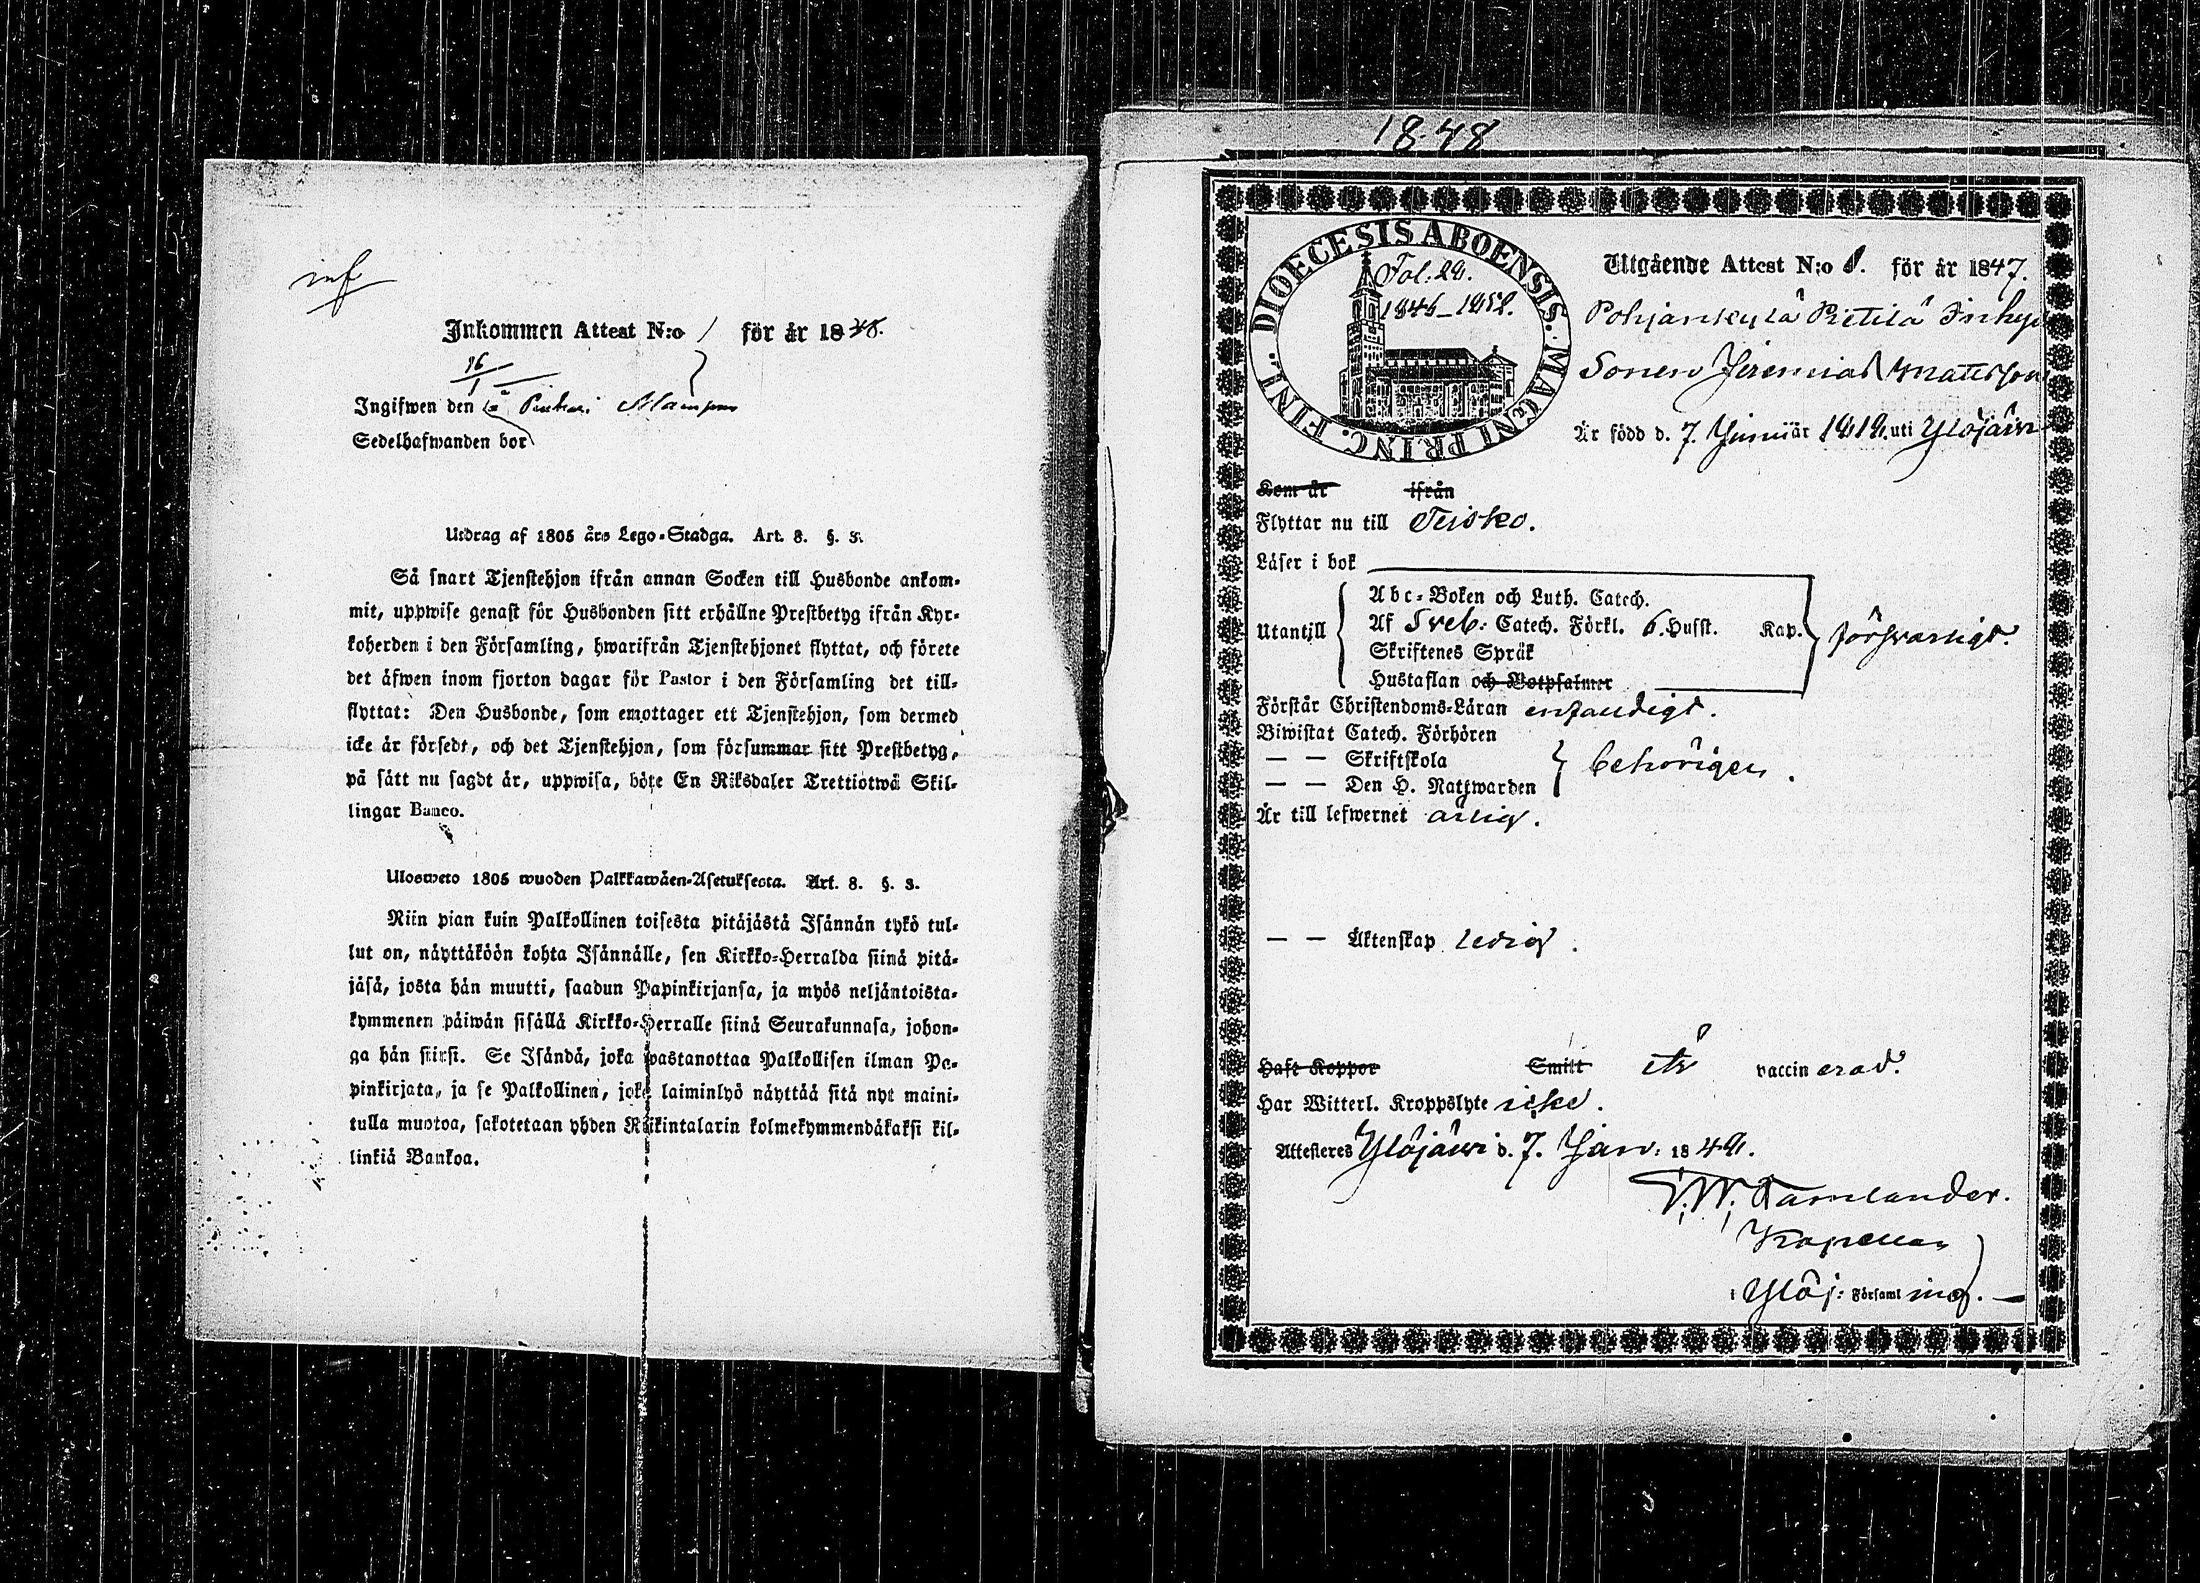 inf
Inkommen Attest N:o 1 för år 1848.
16/1
Ingifwen den
Sedelhafwanden bor
Utdrag af 1805 års Lego-Stadga. Art. 8. §. 3.
Så snart Tjenstehjon ifrån annan Socken till Husbonde ankom-
mit, uppwise genast för Husbonden sitt erhållne Prestbetyg ifrån Kyr-
koherden i den Församling, hwarifrån Tjenstehjonet flyttat, och förete
det äfwen inom fjorton dagar för Pastor i den Församling det till-
flyttat: Den Husbonde, som emottager ett Tjenstehjon, som dermed
icke är försedt, och det Tjenstehjon, som försummar sitt Prestbetyg,
på sätt nu sagdt är, uppwisa, böte En Riksdaler Trettiotwå Skil-
lingar Banco.
Ulosweto 1805 wuoden Palkkawäen-Asetuksesta. Art. 8. §. 3.
Niin pian kuin Palkollinen toisesta pitäjästä Isännän tykö tul-
lut on, näyttäköön kohta Isännälle, sen Kirkko-Herralda siinä pitä-
jäsä, josta hän muutti, saadun Papinkirjansa, ja myös neljäntoista-
kymmenen päiwän sisällä Kirkko-Herralle siinä Seurakunnasa, johon-
ga hän siirsi. Se Isändä, joka wastanottaa Palkollisen ilman Pa-
pinkirjata, ja se Palkollinen, joka laiminlyö näyttää sitä nyt maini-
tulla muotoa, sakotetaan yhden Riikintalarin kolmekymmendäkaksi kil-
linkiä Bankoa.
1848
DIOECESIS ABOENSIS. MAGNI PRINC. FINL.
Fol. 28.
1846-1852.
Utgående Attest N:o 1. för år 1847.
Pohjankylä Pietilä Inhys
Sonen Jeremias Mattsson
Är född d. 7. Januär 1818. uti Ylöjärvi
Kom år ifrån
Flyttar nu till Teisko.
Läser i bok
Utantill
Abc-Boken och Luth. Catech.
Af Sveb: Catech. Förkl. 6. Husst. Kap.
Skriftenes Språk
Hustaflan och Botpsalmer
försvarligt.
Förstår Christendoms-Läran enfaldigt.
Biwistat Catech. Förhören
— — Skriftskola
— — Den H. Nattwarden
behörigen.
Är till lefwernet ärlig.
— — Äktenskap ledig.
Haft Koppor Smitt vaccinerad.
Har Witterl. Kroppslyte icke.
Attesteres Ylöjärvi d. 7. Jan: 1848.
Kapellan
i Ylöj: Församling.